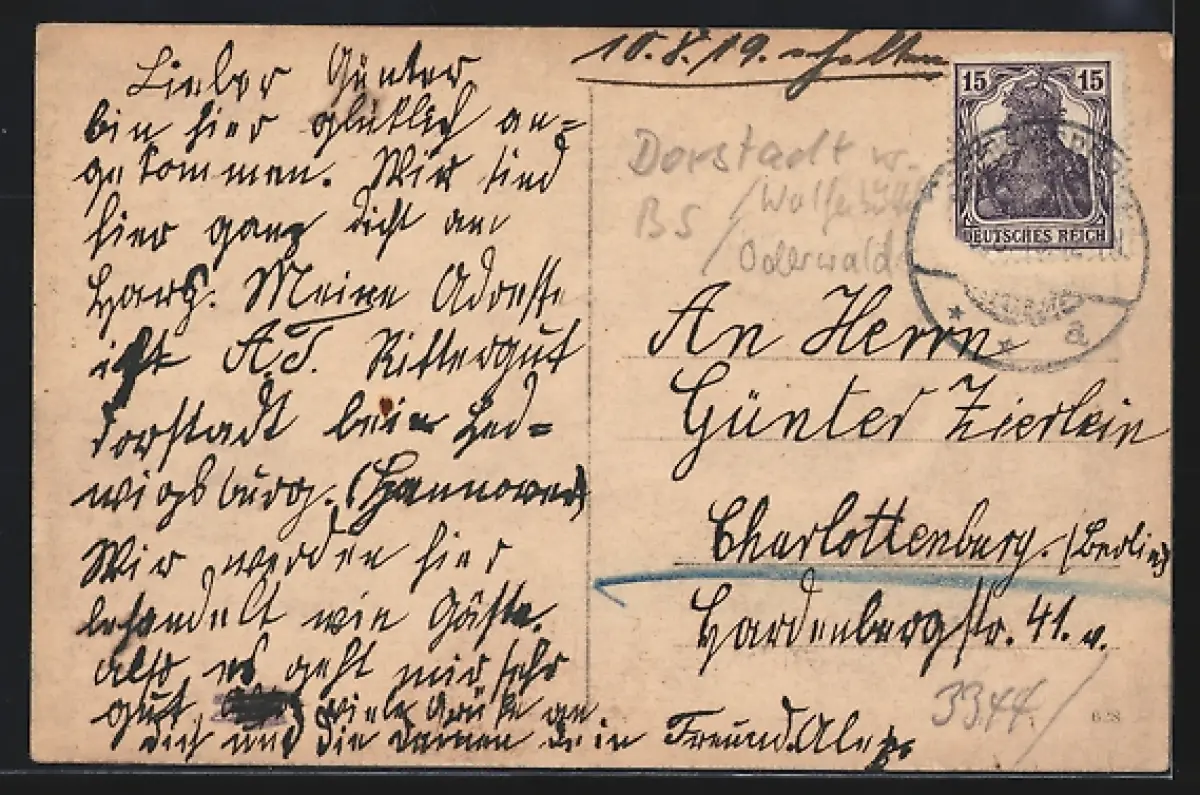 Lieber Günter
bin hier glüklich an=
gekommen. Wir sind
hier ganz dicht am
Harz. Meine Adresse
ist A.T. Rittergut
Dorstadt bei Hed=
wigsburg. (Hannover)
Wir werden hier
behandelt wie Gäste.
also es geht mir sehr
gut, viele Grüße an
dich und die deinen dein Freund
10.8.19. erhalten
15 15
DEUTSCHES REICH
Dorstadt
BS /
Oderwald
An Herrn
Günter Zierlein
Charlottenburg. (Berlin)
Hardenbergstr. 41. v.
3344
a